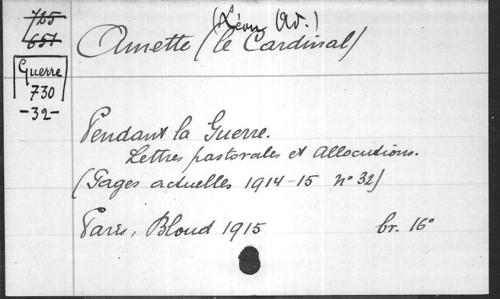 725
651
Guerre
730
-32-
(Léon Ad.)
Amette (le Cardinal)
Pendant la Guerre.
Lettres pastorales et Allocutions.
(Pages actuelles 1914-15 n° 32)
Paris, Bloud 1915 br. 16°